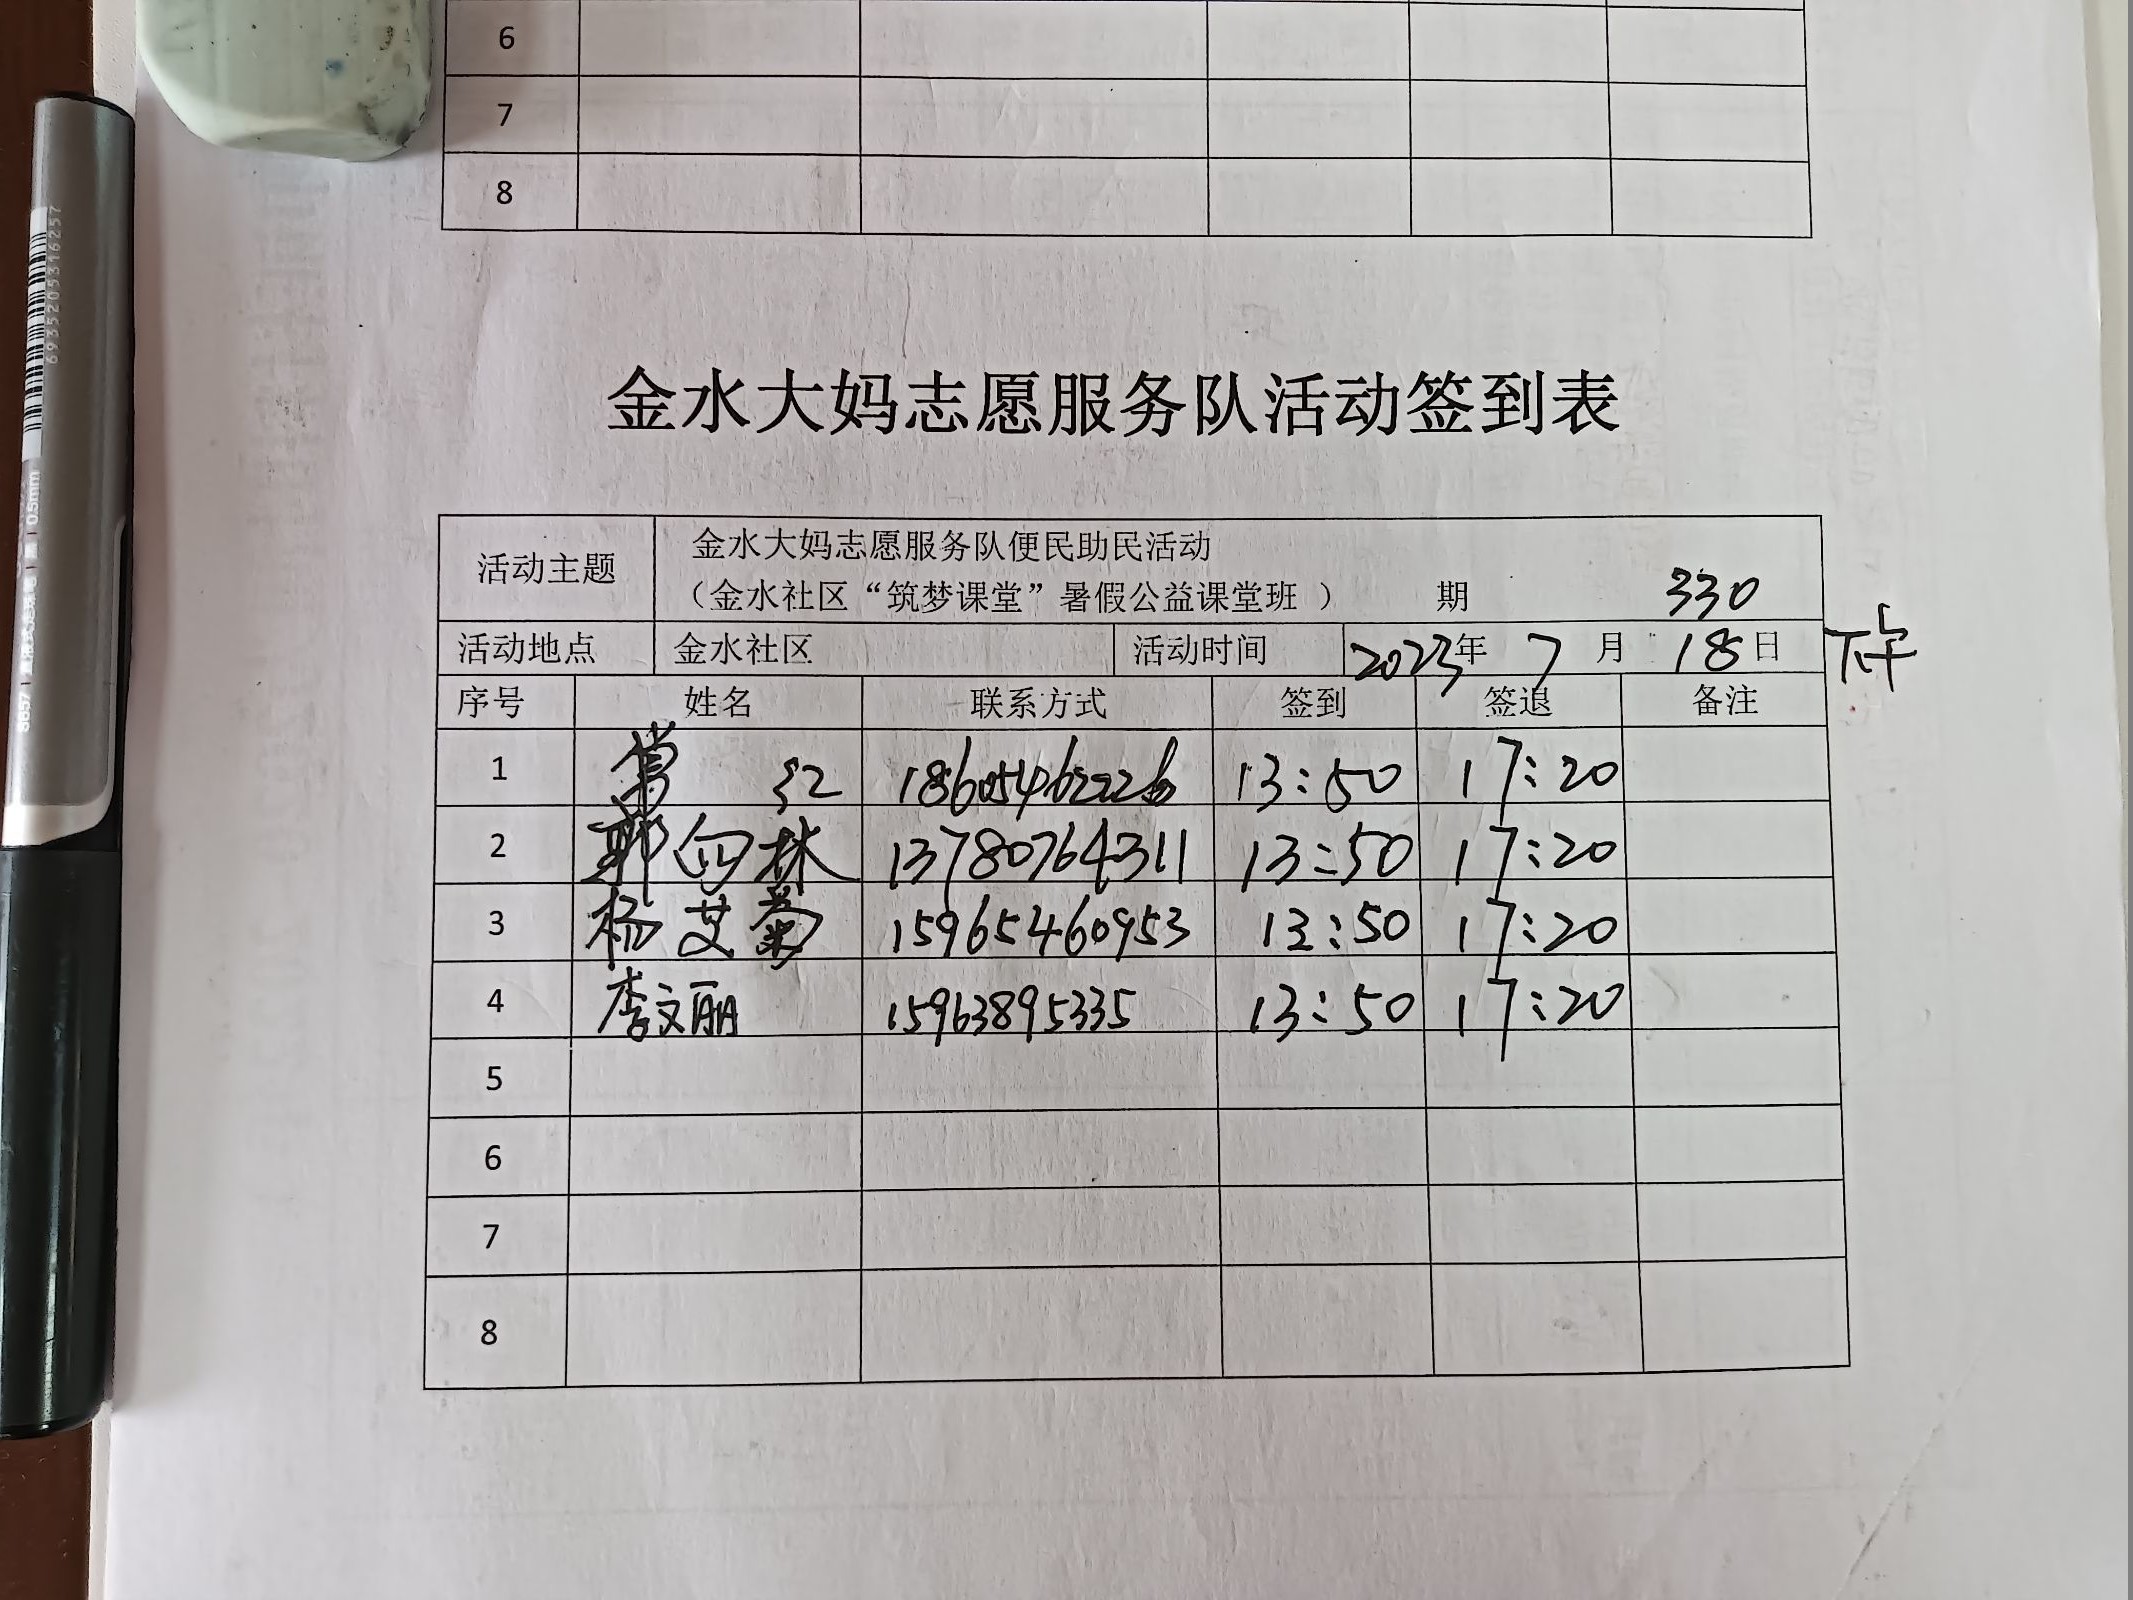 6
7
8
6935205316257
0.5mm
金水大妈志愿服务队活动签到表
活动主题 金水大妈志愿服务队便民助民活动
（金水社区“筑梦课堂”暑假公益课堂班 ） 期 330
活动地点 金水社区 活动时间 2023年 7 月 18日 下午
序号 姓名 联系方式 签到 签退 备注
1 红 18605462226 13:50 17:20
2 郭向林 13780764311 13:50 17:20
3 杨艾菊 15965460953 13:50 17:20
4 李文丽 15963895335 13:50 17:20
5
6
7
8